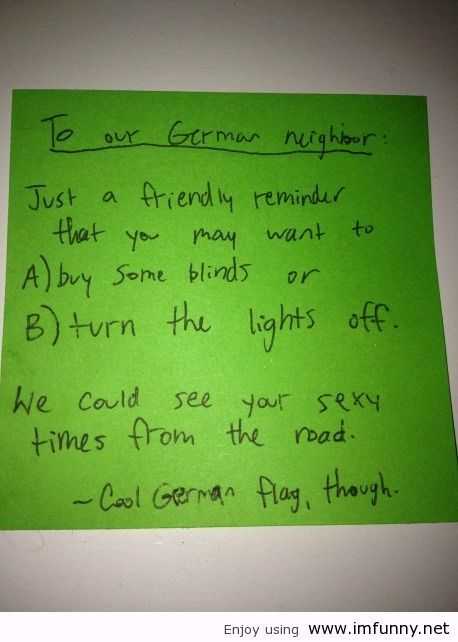 To our German neighbor:
Just a friendly reminder
that you may want to
A) buy some blinds or
B) turn the lights off.
We could see your sexy
times from the road.
~ Cool German flag, though.
Enjoy using www.imfunny.net